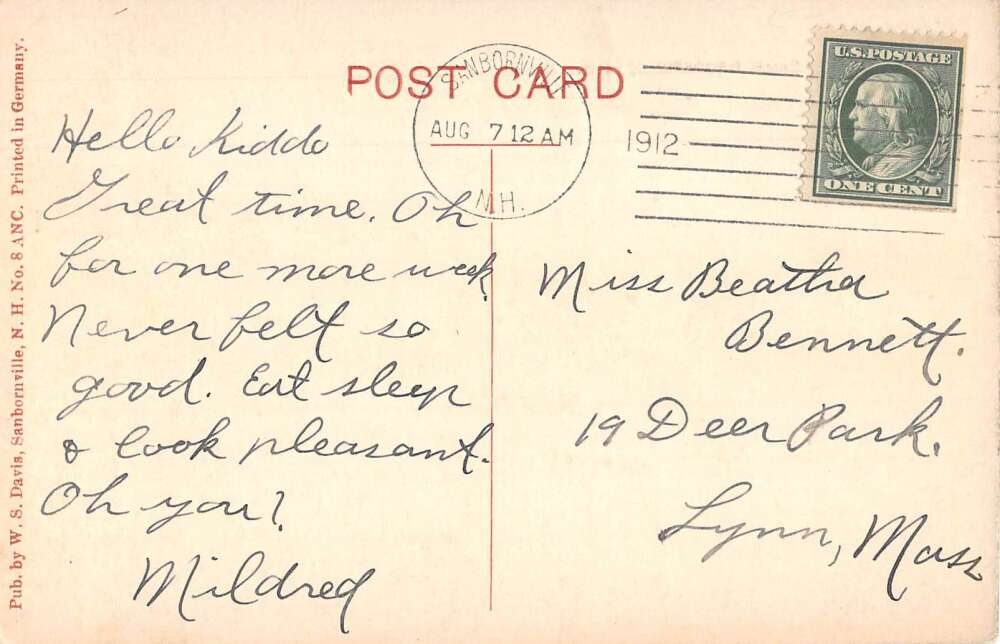 POST CARD
SANBORNVILLE
AUG 7 12 AM
N.H.
1912
U.S. POSTAGE
ONE CENT
Hello Kiddo
Great time. Oh
for one more week.
Never felt so
good. Eat sleep
& look pleasant.
Oh you!
Mildred
Miss Beatha
Bennett.
19 Deer Park.
Lynn, Mass
Pub. by W. S. Davis, Sanbornville, N. H. No. 8 ANC. Printed in Germany.